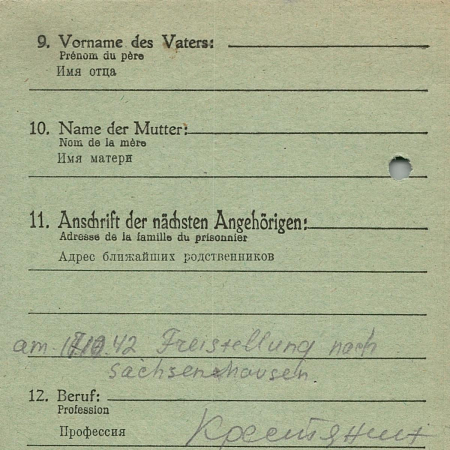 9. Vorname des Vaters:
Prénom du père
Имя отца
10. Name der Mutter:
Nom de la mère
Имя матери
11. Anschrift der nächsten Angehörigen:
Adresse de la famille du prisonnier
Адрес ближайших родственников
am 42 Freistellung nach
Sachsenhausen
12. Beruf:
Profession
Профессия
Крестянин